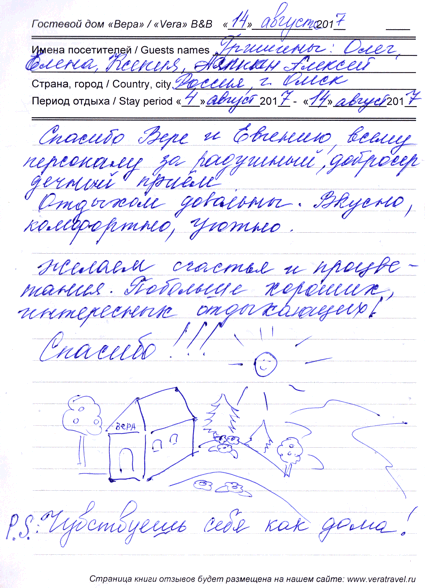 Гостевой дом «Вера» / «Vera» B&B «14» августа 2017
Имена посетителей / Guests names Гришины: Олег,
Елена, Ксения, Алексей
Страна, город / Country, city, Россия, г. Омск
Период отдыха / Stay period «4» август 2017 - «14» август 2017
Спасибо Вере и Евгению, всему
персоналу за радушный, добросер
дечный приём
Отдыхом довольны. Вкусно,
комфортно, уютно.
Желаем счастья и процве-
тания. Побольше хороших,
интересных отдыхающих!
Спасибо!!!
ВЕРА
P.S.: Чувствуешь себя как дома!
Страница книги отзывов будет размещена на нашем сайте: www.veratravel.ru